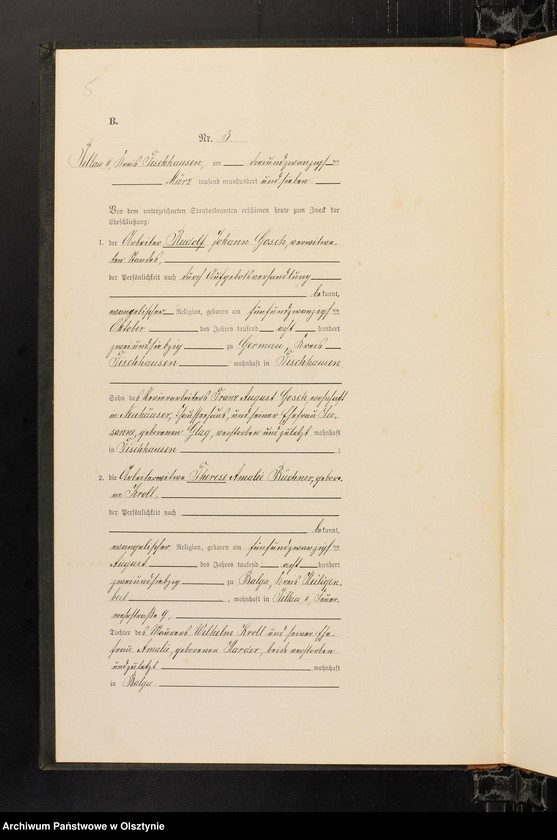 5.
B.
Nr. 3.
Pillau II, Kreis Fischhausen, am dreiundzwanzigsten
März tausend neunhundert und sieben
Vor dem unterzeichneten Standesbeamten erschienen heute zum Zweck der
Eheschließung:
1. der Arbeiter Rudolf Johann Gosch, verwitwe-
ten Standes,
der Persönlichkeit nach durch Aufgebotsverhandlung
bekannt,
evangelischer Religion, geboren am fünfundzwanzigsten
Oktober des Jahres tausend acht hundert
zweiundsiebzig zu Germau, Kreis
Fischhausen, wohnhaft in Fischhausen
Sohn des Revierarbeiters Franz August Gosch, wohnhaft
in Neuhäuser, und seiner Ehefrau Su-
sanne, geborenen verstorben und zuletzt wohnhaft
in Fischhausen ;
2. die Arbeiterwitwe Therese Amalie Büchner, gebore-
ne Kroll,
der Persönlichkeit nach
bekannt,
evangelischer Religion, geboren am fünfundzwanzigsten
August des Jahres tausend acht hundert
zweiundsiebzig zu Balga, Kreis Heiligen-
beil, wohnhaft in Pillau II,
9,
Tochter des Maurers Wilhelm Kroll und seiner Ehe-
frau Amalie, geborenen Harder, beide verstorben
und zuletzt wohnhaft
in Balga.
Archiwum Państwowe w Olsztynie